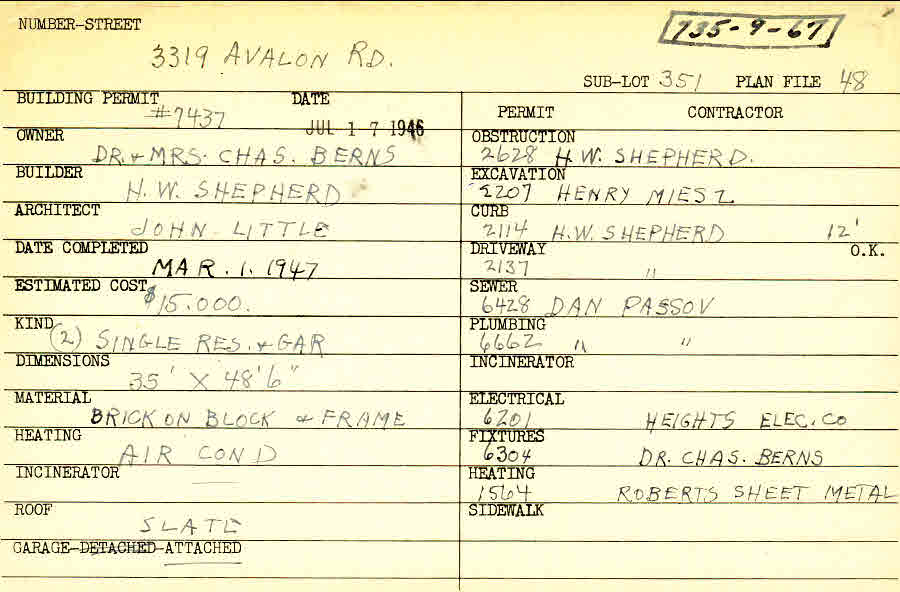 735-9-67
NUMBER-STREET
3319 AVALON RD.
SUB-LOT 351 PLAN FILE 48
BUILDING PERMIT DATE
#7437 JUL 17 1946
OWNER
DR. & MRS. CHAS. BERNS
BUILDER
H. W. SHEPHERD
ARCHITECT
JOHN LITTLE
DATE COMPLETED
MAR. 1. 1947
ESTIMATED COST
$15.000.
KIND
(2) SINGLE RES. & GAR
DIMENSIONS
35' X 48'6"
MATERIAL
BRICK ON BLOCK & FRAME
HEATING
AIR COND
INCINERATOR
ROOF
SLATE
GARAGE-DETACHED-ATTACHED
PERMIT CONTRACTOR
OBSTRUCTION
2628 H. W. SHEPHERD.
EXCAVATION
2207 HENRY MIESZ
CURB
2114 H. W. SHEPHERD 12'
DRIVEWAY O.K.
2137 "
SEWER
6428 DAN PASSOV
PLUMBING
6662 " "
INCINERATOR
ELECTRICAL
6201 HEIGHTS ELEC. CO
FIXTURES
6304 DR. CHAS. BERNS
HEATING
1564 ROBERTS SHEET METAL
SIDEWALK